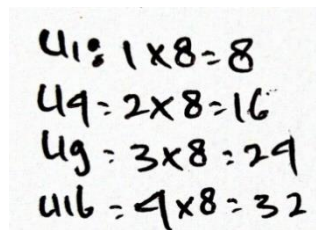 U1: 1x8=8
U4=2x8=16
U9=3x8=24
U16=4x8=32